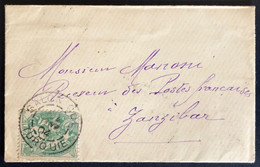 Monsieur Manoni
Receveur des Postes françaises
à
Zanzibar
TURQUIE